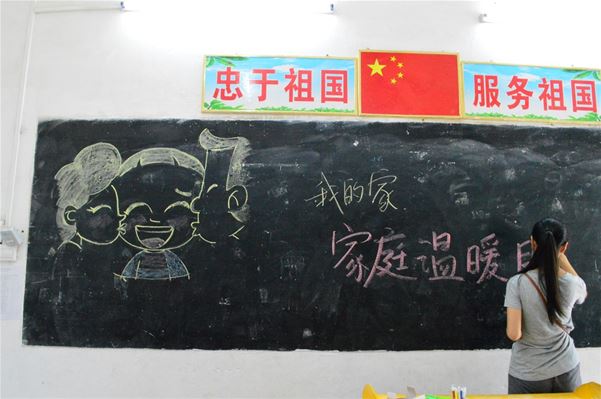 忠于祖国
服务祖国
我的家
家庭温暖